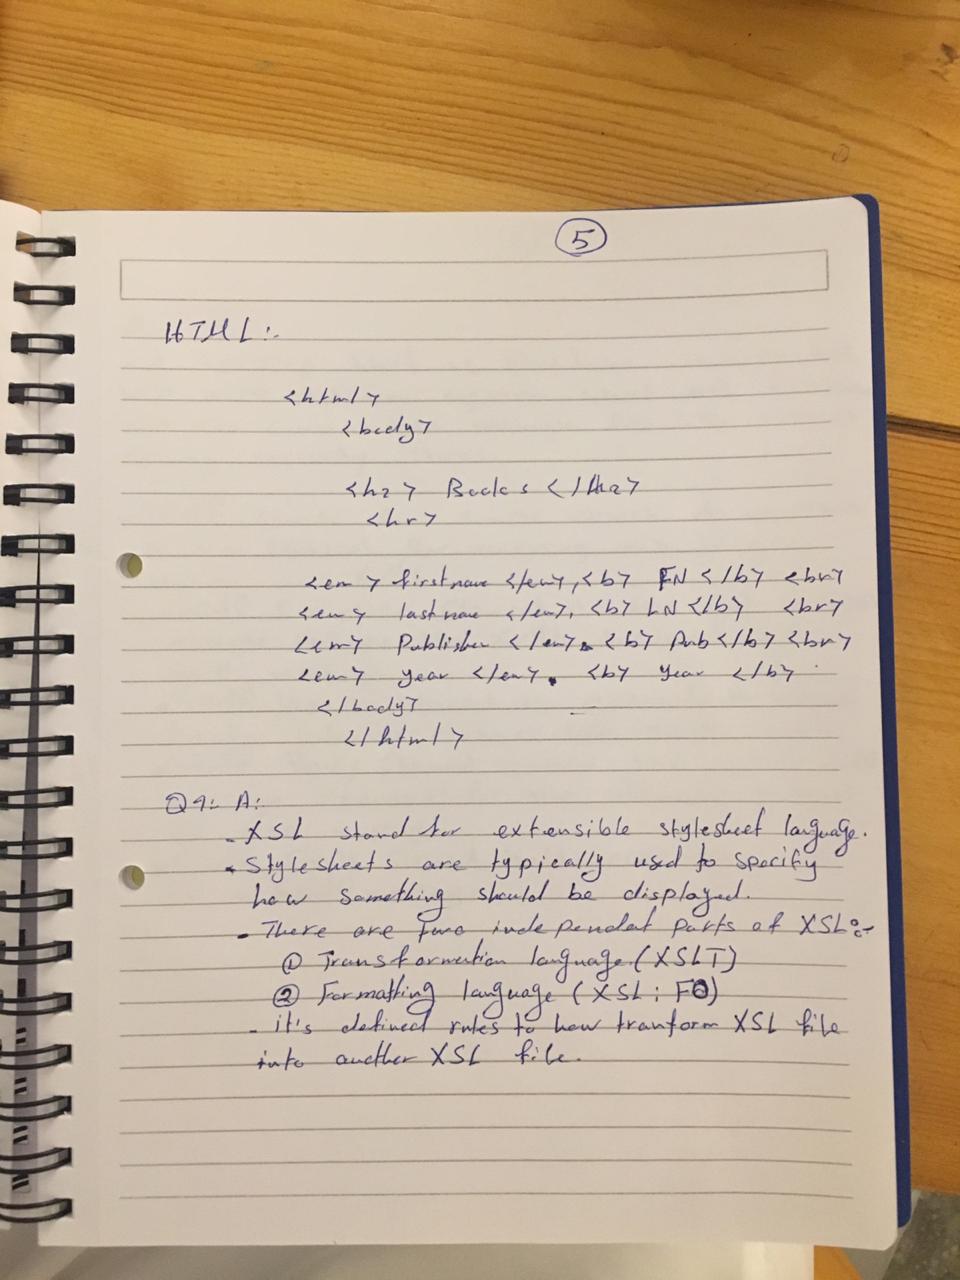 5
HTML:-
<html>
<body>
<h2> Books </h2>
<hr>
<em> firstname </em>, <b> FN </b> <br>
<em> lastname </em>, <b> LN </b> <br>
<em> Publisher </em>. <b> Pub </b> <br>
<em> year </em>. <b> year </b>
</body>
</html>
Q4: A:
- XSL stand for extensible stylesheet language.
- Stylesheets are typically used to specify
how something should be displayed.
- There are two independat parts of XSL:-
① Transformation language (XSLT)
② Formatting language (XSL: FO)
- it's defined rules to how tranform XSL file
into another XSL file.